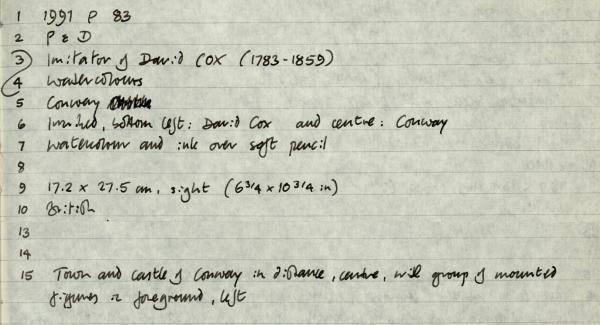 1 1991 P 83
2 P & D
3 Imitator of David COX (1783-1859)
4 Watercolours
5 Conway
6 Inscribed, bottom left: David Cox and centre: Conway
7 Watercolour and ink over soft pencil
8
9 17.2 x 27.5 cm, sight (6 3/4 x 10 3/4 in)
10 British
13
14
15 Town and castle of Conway in distance, centre, with group of mounted
figures in foreground, left